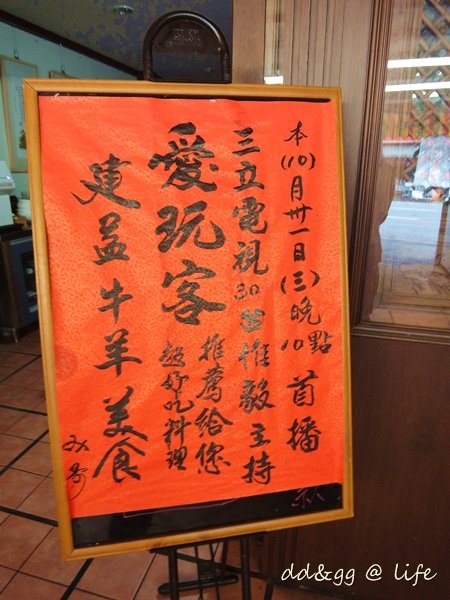 本(10)月卅一日(三)晚10點首播
三立電視30台 惟毅主持
愛玩客 推薦給您
超好吃料理
建益牛羊美食
dd&gg @ life